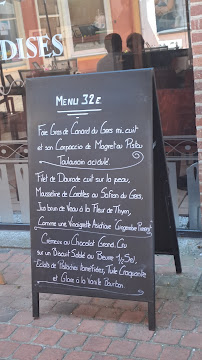 DISES
MENU 32€
Foie Gras de Canard du Gers mi.cuit
et son Carpaccio de Magret au Pistou
Toulousain acidulé.
Filet de Daurade cuit sur la peau,
Mousseline de Carottes au Safran du Gers,
Jus brun de Veau à la Fleur de Thym,
Comme une Vinaigrette Asiatique (Gingembre Piment)
Crémeux au Chocolat Grand Cru
sur un Biscuit Sablé au Beurre 1/2 Sel,
Eclats de Pistaches Torréfiées, Tuile Craquante
et Glace à la Vanille Bourbon.